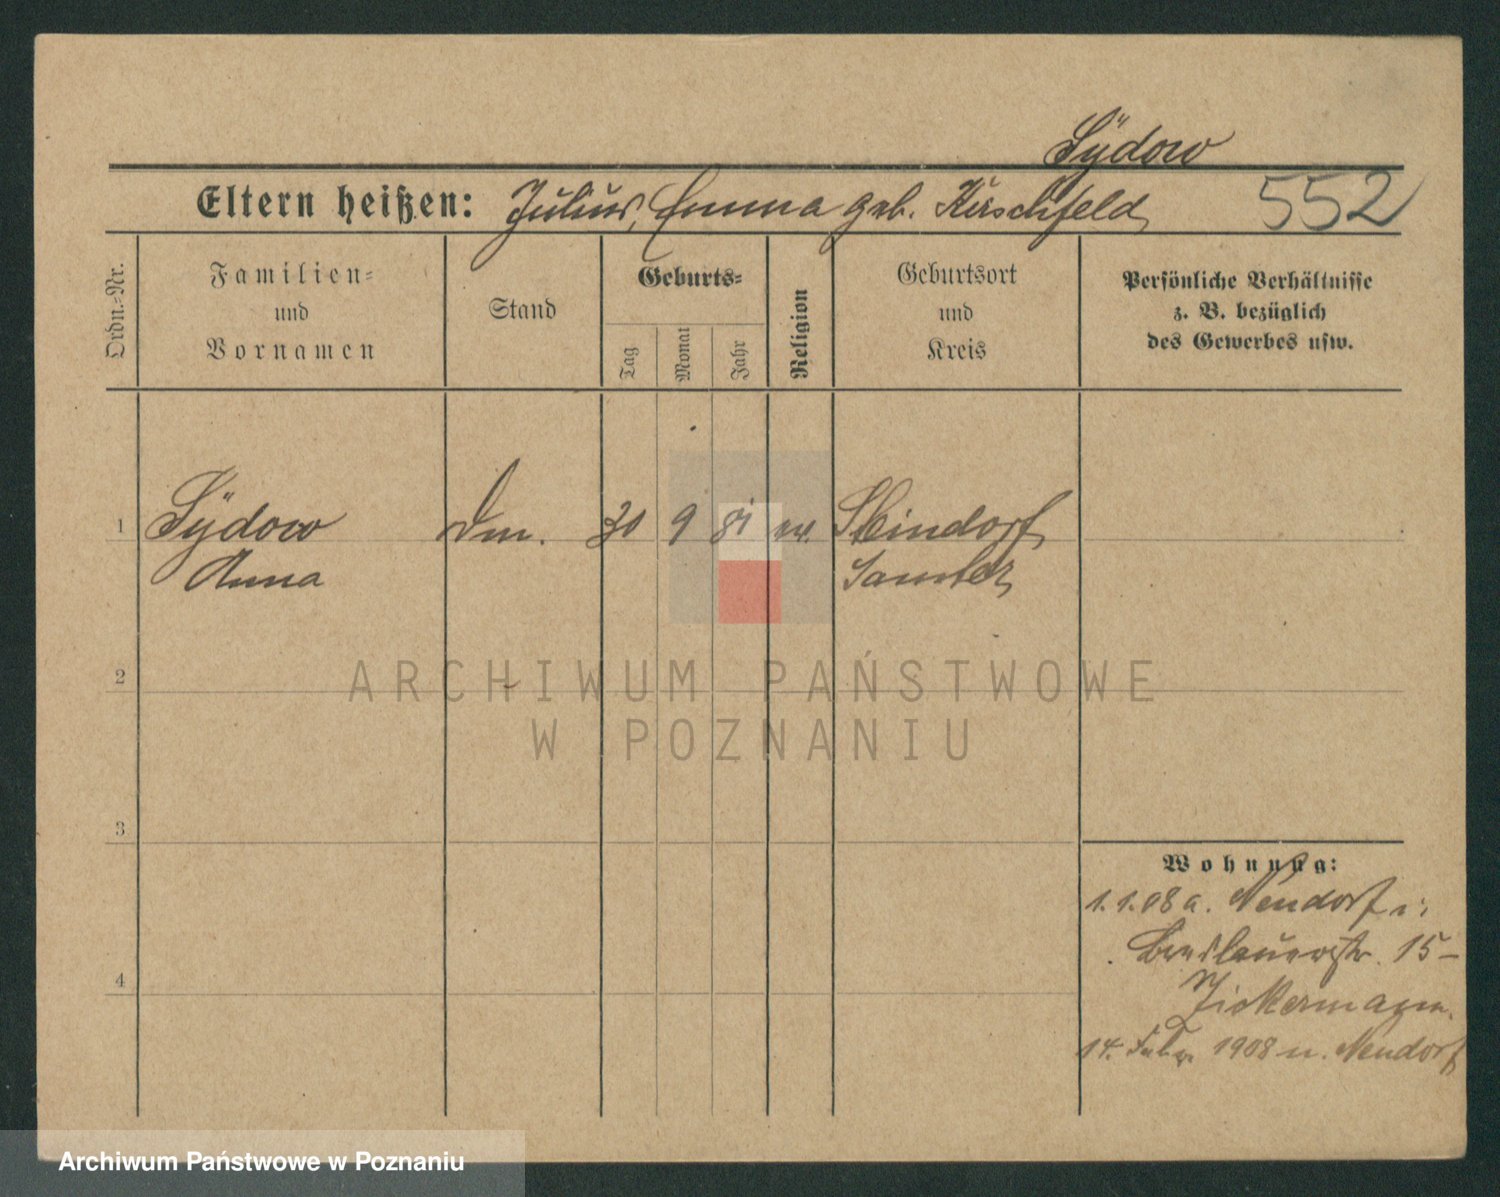 Sÿdow
Eltern heißen: Julius, Emma geb. Kirschfeld 552
Ordn.-Nr.
Familien-
und
Vornamen
Stand
Geburts-
Tag
Monat
Jahr
Religion
Geburtsort
und
Kreis
Persönliche Verhältnisse
z. B. bezüglich
des Gewerbes usw.
1 Sÿdow 30 9 81 ev. Steindorf
Anna Samter
2
ARCHIWUM PAŃSTWOWE
W POZNANIU
3
Wohnung:
1.1.08 a. Neudorf
Breslauerstr. 15
4
14. Febr. 1908 n. Neudorf
Archiwum Państwowe w Poznaniu